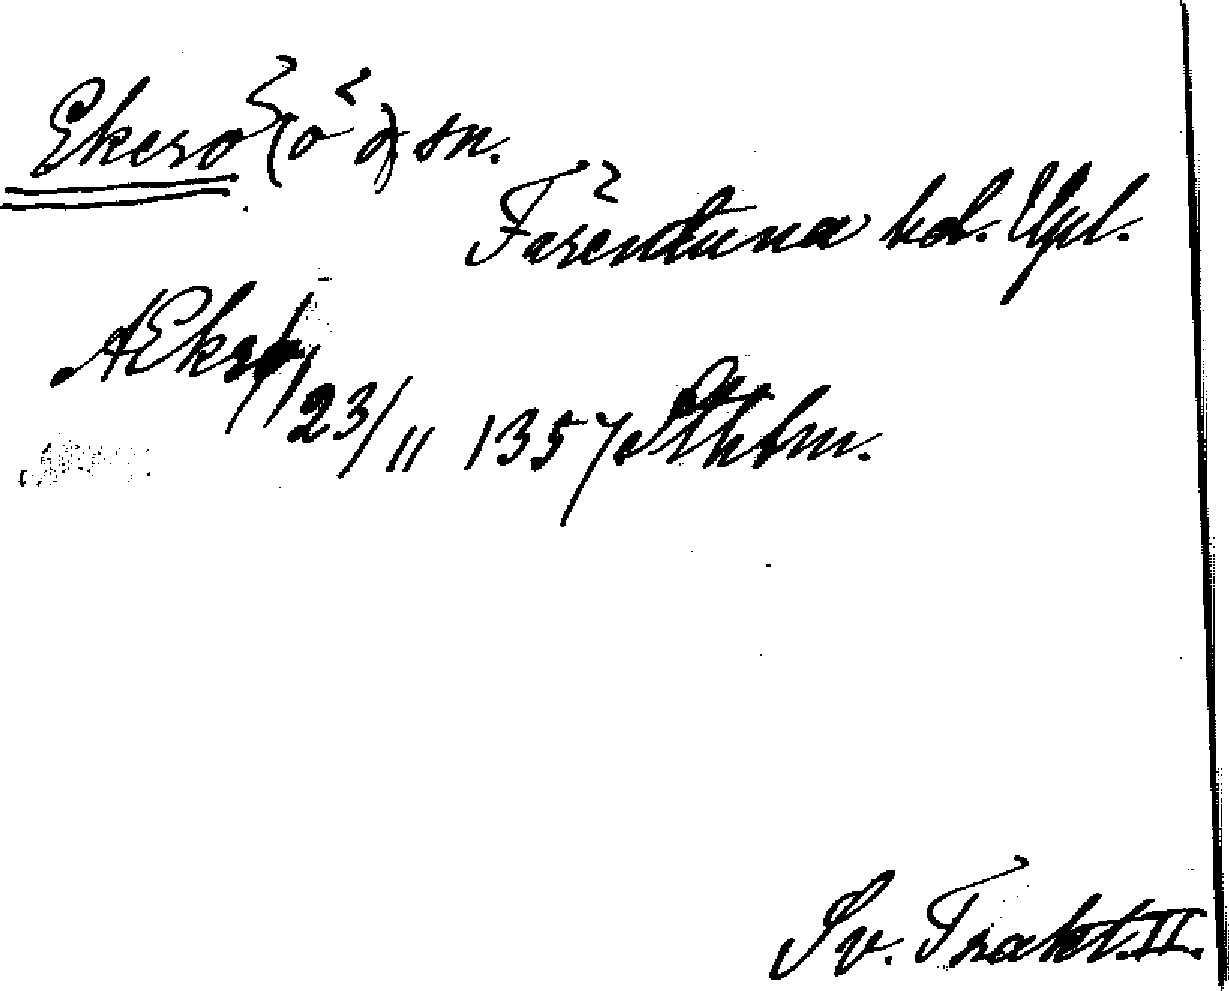 Ekerö (ö o) sn.
Färentuna hd. Upl.
Ækrø 23/11 1357 Sthlm.
Sv. Trakt. II.